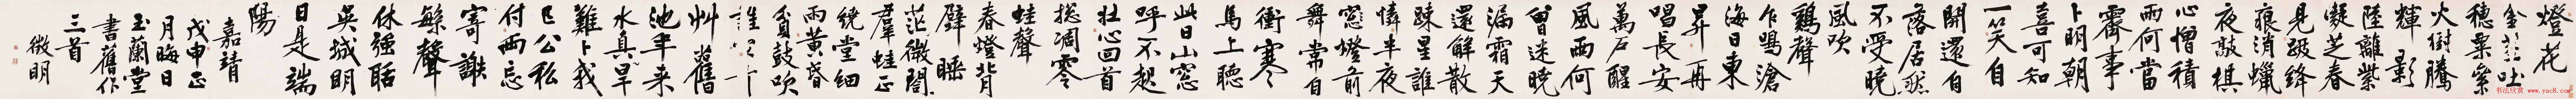 燈花
吐
穗粟
火樹騰
輝影
陸離紫
凝芝春
見跋絳
痕消蠟
夜敲棋
心憎積
雨何當
霽事
卜明朝
喜可知
一笑自
開還自
落居然
不受曉
風吹
鷄聲
乍鳴滄
海日東
昇再
唱長安
萬戶醒
風雨何
曾迷曉
漏霜天
還解散
疎星誰
憐半夜
窓燈前
舞常自
衝寒
馬上聽
此日山窓
呼不起
壯心回首
揔凋零
蛙聲
春燈背
壁睡
茫微聞
羣蛙正
繞堂細
雨黃昏
貧鼓吹
誰家
艸舊
池年来
水真旱
難卜我
已公私
付兩忘
寄謝
繁聲
休強聒
吳城明
日是端
陽
嘉靖
戊申正
月晦日
玉蘭堂
書舊作
三首
徵明
书法欣赏 www.yac8.com